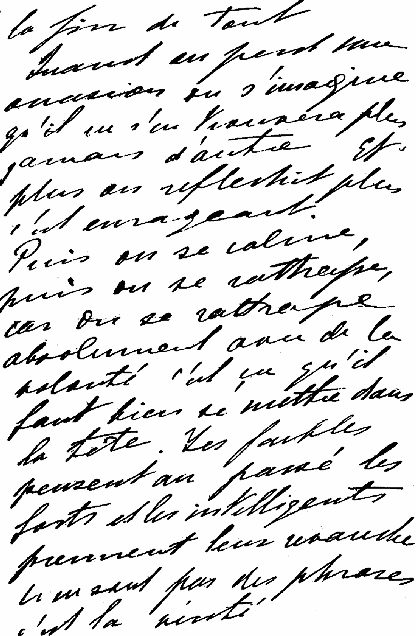 la fin de tout
Quand on perd une
occasion on s'imagine
qu'il ne s'en trouvera plus
jamais d'autre Et
plus on reflechit plus
c'est enrageant.
Puis on se calme,
puis on se rattrape,
car on se rattrape
absolument avec de la
volonté c'est ce qu'il
faut bien se mettre dans
la tête. Les faibles
pensent au passé les
forts et les intelligents
prennent leur revanche
Ce ne sont pas des phrases
c'est la vérité